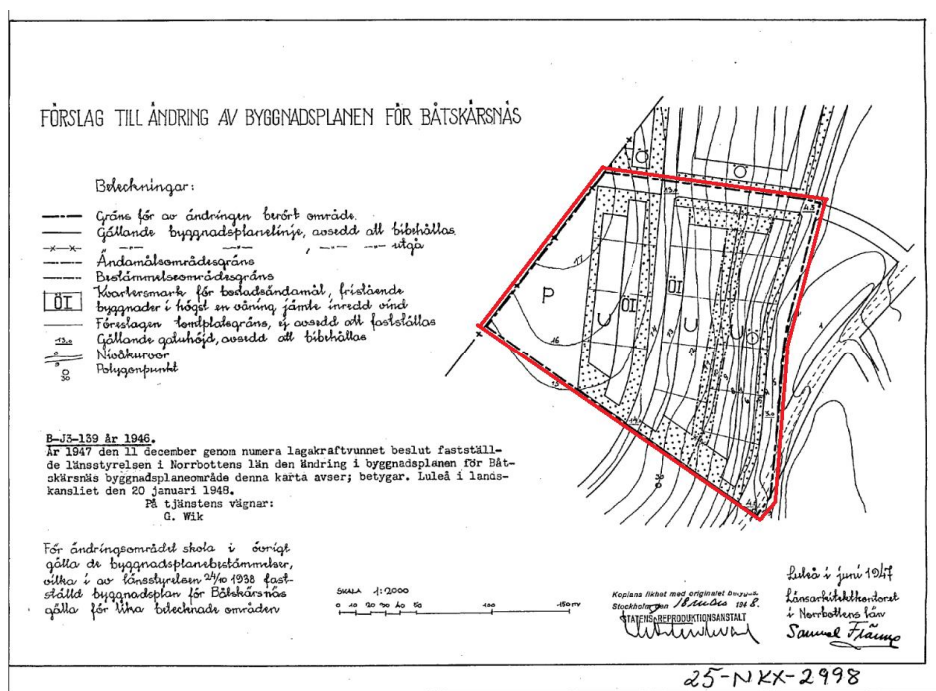 FÖRSLAG TILL ÄNDRING AV BYGGNADSPLANEN FÖR BÅTSKÄRSNÄS
Beteckningar:
Gräns för av ändringen berört område.
Gällande byggnadsplanelinje, avsedd att bibehållas.
" —"— , —"— —"— utgå
Ändamålsområdesgräns
Bestämmelseområdesgräns
ÖI Kvartersmark för bostadsändamål, fristående
byggnader i högst en våning jämte inredd vind
Föreslagen tomtplatsgräns, ej avsedd att fastställas
13.0 Gällande gatuhöjd, avsedd att bibehållas
Nivåkurvor
30 Polygonpunkt
B-J3-139 år 1946.
År 1947 den 11 december genom numera lagakraftvunnet beslut faststäl-
de länsstyrelsen i Norrbottens län den ändring i byggnadsplanen för Båt-
skärsnäs byggnadsplaneområde denna karta avser; betygar. Luleå i lands-
kansliet den 20 januari 1948.
På tjänstens vägnar:
G. Wik
För ändringsområdet skola i övrigt
gälla de byggnadsplanebestämmelser,
vilka i av länsstyrelsen 24/10 1938 fast-
ställd byggnadsplan för Båtskärsnäs
gälla för lika betecknade områden
SKALA 1:2000
0 10 20 30 40 50 100 150 m
Kopians likhet med originalet betygas.
Stockholm den 18 mars 1948.
STATENS REPRODUKTIONSANSTALT
Luleå i juni 1947
Länsarkitektkontoret
i Norrbottens län
Samuel Fränne
25-NKX-2998
P
ÖI
ÖI
17
16
15
13.0
4.5